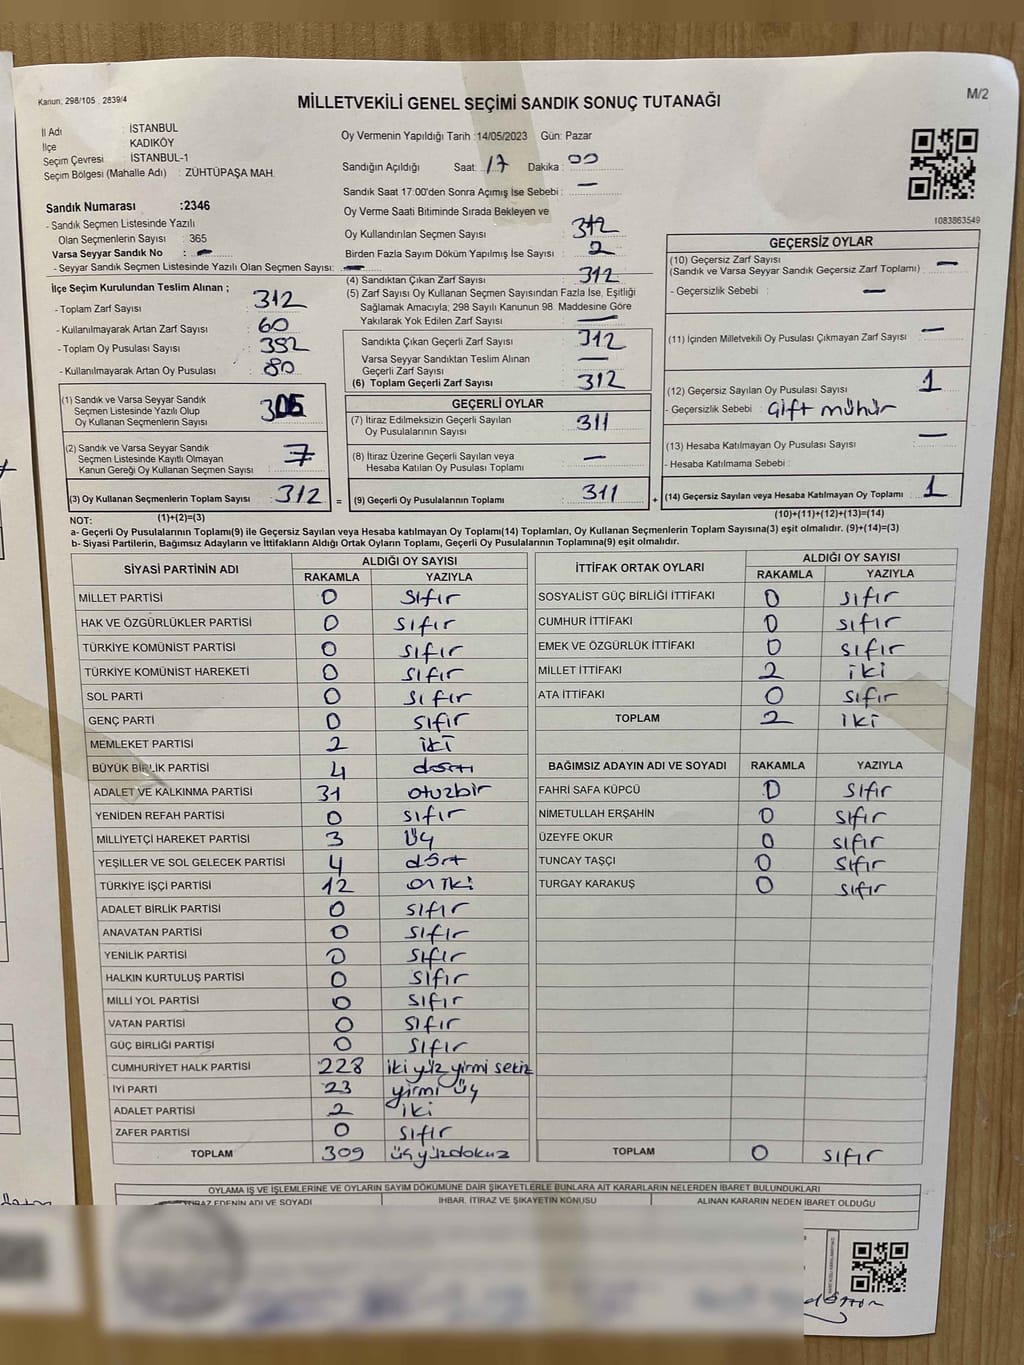 Kanun; 298/105 ; 2839/4
MİLLETVEKİLİ GENEL SEÇİMİ SANDIK SONUÇ TUTANAĞI
M/2
İl Adı : İSTANBUL
İlçe : KADIKÖY
Seçim Çevresi : İSTANBUL-1
Seçim Bölgesi (Mahalle Adı) : ZÜHTÜPAŞA MAH.
Sandık Numarası :2346
- Sandık Seçmen Listesinde Yazılı
Olan Seçmenlerin Sayısı : 365
Varsa Seyyar Sandık No : —
- Seyyar Sandık Seçmen Listesinde Yazılı Olan Seçmen Sayısı: —
İlçe Seçim Kurulundan Teslim Alınan ;
- Toplam Zarf Sayısı 312
- Kullanılmayarak Artan Zarf Sayısı 60
- Toplam Oy Pusulası Sayısı 392
- Kullanılmayarak Artan Oy Pusulası : 80
(1) Sandık ve Varsa Seyyar Sandık
Seçmen Listesinde Yazılı Olup
Oy Kullanan Seçmenlerin Sayısı 305
(2) Sandık ve Varsa Seyyar Sandık
Seçmen Listesinde Kayıtlı Olmayan
Kanun Gereği Oy Kullanan Seçmen Sayısı : 7
(3) Oy Kullanan Seçmenlerin Toplam Sayısı : 312 =
Oy Vermenin Yapıldığı Tarih :14/05/2023 Gün: Pazar
Sandığın Açıldığı Saat: 17 Dakika : 00
Sandık Saat 17:00'den Sonra Açımış İse Sebebi : —
Oy Verme Saati Bitiminde Sırada Bekleyen ve
Oy Kullandırılan Seçmen Sayısı 312
Birden Fazla Sayım Döküm Yapılmış İse Sayısı : 2
(4) Sandıktan Çıkan Zarf Sayısı : 312
(5) Zarf Sayısı Oy Kullanan Seçmen Sayısından Fazla İse, Eşitliği
Sağlamak Amacıyla; 298 Sayılı Kanunun 98. Maddesine Göre
Yakılarak Yok Edilen Zarf Sayısı : —
Sandıkta Çıkan Geçerli Zarf Sayısı : 312
Varsa Seyyar Sandıktan Teslim Alınan
Geçerli Zarf Sayısı : —
(6) Toplam Geçerli Zarf Sayısı : 312
GEÇERLİ OYLAR
(7) İtiraz Edilmeksizin Geçerli Sayılan
Oy Pusulalarının Sayısı : 311
(8) İtiraz Üzerine Geçerli Sayılan veya
Hesaba Katılan Oy Pusulası Toplamı : —
(9) Geçerli Oy Pusulalarının Toplamı : 311 +
1083863549
GEÇERSİZ OYLAR
(10) Geçersiz Zarf Sayısı
(Sandık ve Varsa Seyyar Sandık Geçersiz Zarf Toplamı) : —
- Geçersizlik Sebebi : —
(11) İçinden Milletvekili Oy Pusulası Çıkmayan Zarf Sayısı : —
(12) Geçersiz Sayılan Oy Pusulası Sayısı : 1
- Geçersizlik Sebebi : Çift mühür
(13) Hesaba Katılmayan Oy Pusulası Sayısı : —
- Hesaba Katılmama Sebebi :
(14) Geçersiz Sayılan veya Hesaba Katılmayan Oy Toplamı : 1
NOT: (1)+(2)=(3) (10)+(11)+(12)+(13)=(14)
a- Geçerli Oy Pusulalarının Toplamı(9) ile Geçersiz Sayılan veya Hesaba katılmayan Oy Toplamı(14) Toplamları, Oy Kullanan Seçmenlerin Toplam Sayısına(3) eşit olmalıdır. (9)+(14)=(3)
b- Siyasi Partilerin, Bağımsız Adayların ve İttifakların Aldığı Ortak Oyların Toplamı, Geçerli Oy Pusulalarının Toplamına(9) eşit olmalıdır.
SİYASİ PARTİNİN ADI ALDIĞI OY SAYISI
RAKAMLA YAZIYLA
MİLLET PARTİSİ 0 sıfır
HAK VE ÖZGÜRLÜKLER PARTİSİ 0 sıfır
TÜRKİYE KOMÜNİST PARTİSİ 0 sıfır
TÜRKİYE KOMÜNİST HAREKETİ 0 sıfır
SOL PARTİ 0 sıfır
GENÇ PARTİ 0 sıfır
MEMLEKET PARTİSİ 2 iki
BÜYÜK BİRLİK PARTİSİ 4 dört
ADALET VE KALKINMA PARTİSİ 31 otuzbir
YENİDEN REFAH PARTİSİ 0 sıfır
MİLLİYETÇİ HAREKET PARTİSİ 3 üç
YEŞİLLER VE SOL GELECEK PARTİSİ 4 dört
TÜRKİYE İŞÇİ PARTİSİ 12 on iki
ADALET BİRLİK PARTİSİ 0 sıfır
ANAVATAN PARTİSİ 0 sıfır
YENİLİK PARTİSİ 0 sıfır
HALKIN KURTULUŞ PARTİSİ 0 sıfır
MİLLİ YOL PARTİSİ 0 sıfır
VATAN PARTİSİ 0 sıfır
GÜÇ BİRLİĞİ PARTİSİ 0 sıfır
CUMHURİYET HALK PARTİSİ 228 iki yüz yirmi sekiz
İYİ PARTİ 23 yirmi üç
ADALET PARTİSİ 2 iki
ZAFER PARTİSİ 0 sıfır
TOPLAM 309 üçyüzdokuz
İTTİFAK ORTAK OYLARI ALDIĞI OY SAYISI
RAKAMLA YAZIYLA
SOSYALİST GÜÇ BİRLİĞİ İTTİFAKI 0 sıfır
CUMHUR İTTİFAKI 0 sıfır
EMEK VE ÖZGÜRLÜK İTTİFAKI 0 sıfır
MİLLET İTTİFAKI 2 iki
ATA İTTİFAKI 0 sıfır
TOPLAM 2 iki
BAĞIMSIZ ADAYIN ADI VE SOYADI RAKAMLA YAZIYLA
FAHRİ SAFA KÜPCÜ 0 sıfır
NİMETULLAH ERŞAHİN 0 sıfır
ÜZEYFE OKUR 0 sıfır
TUNCAY TAŞÇI 0 sıfır
TURGAY KARAKUŞ 0 sıfır
TOPLAM 0 sıfır
OYLAMA İŞ VE İŞLEMLERİNE VE OYLARIN SAYIM DÖKÜMÜNE DAİR ŞİKAYETLERLE BUNLARA AİT KARARLARIN NELERDEN İBARET BULUNDUKLARI
İTİRAZ EDENİN ADI VE SOYADI İHBAR, İTİRAZ VE ŞİKAYETİN KONUSU ALINAN KARARIN NEDEN İBARET OLDUĞU